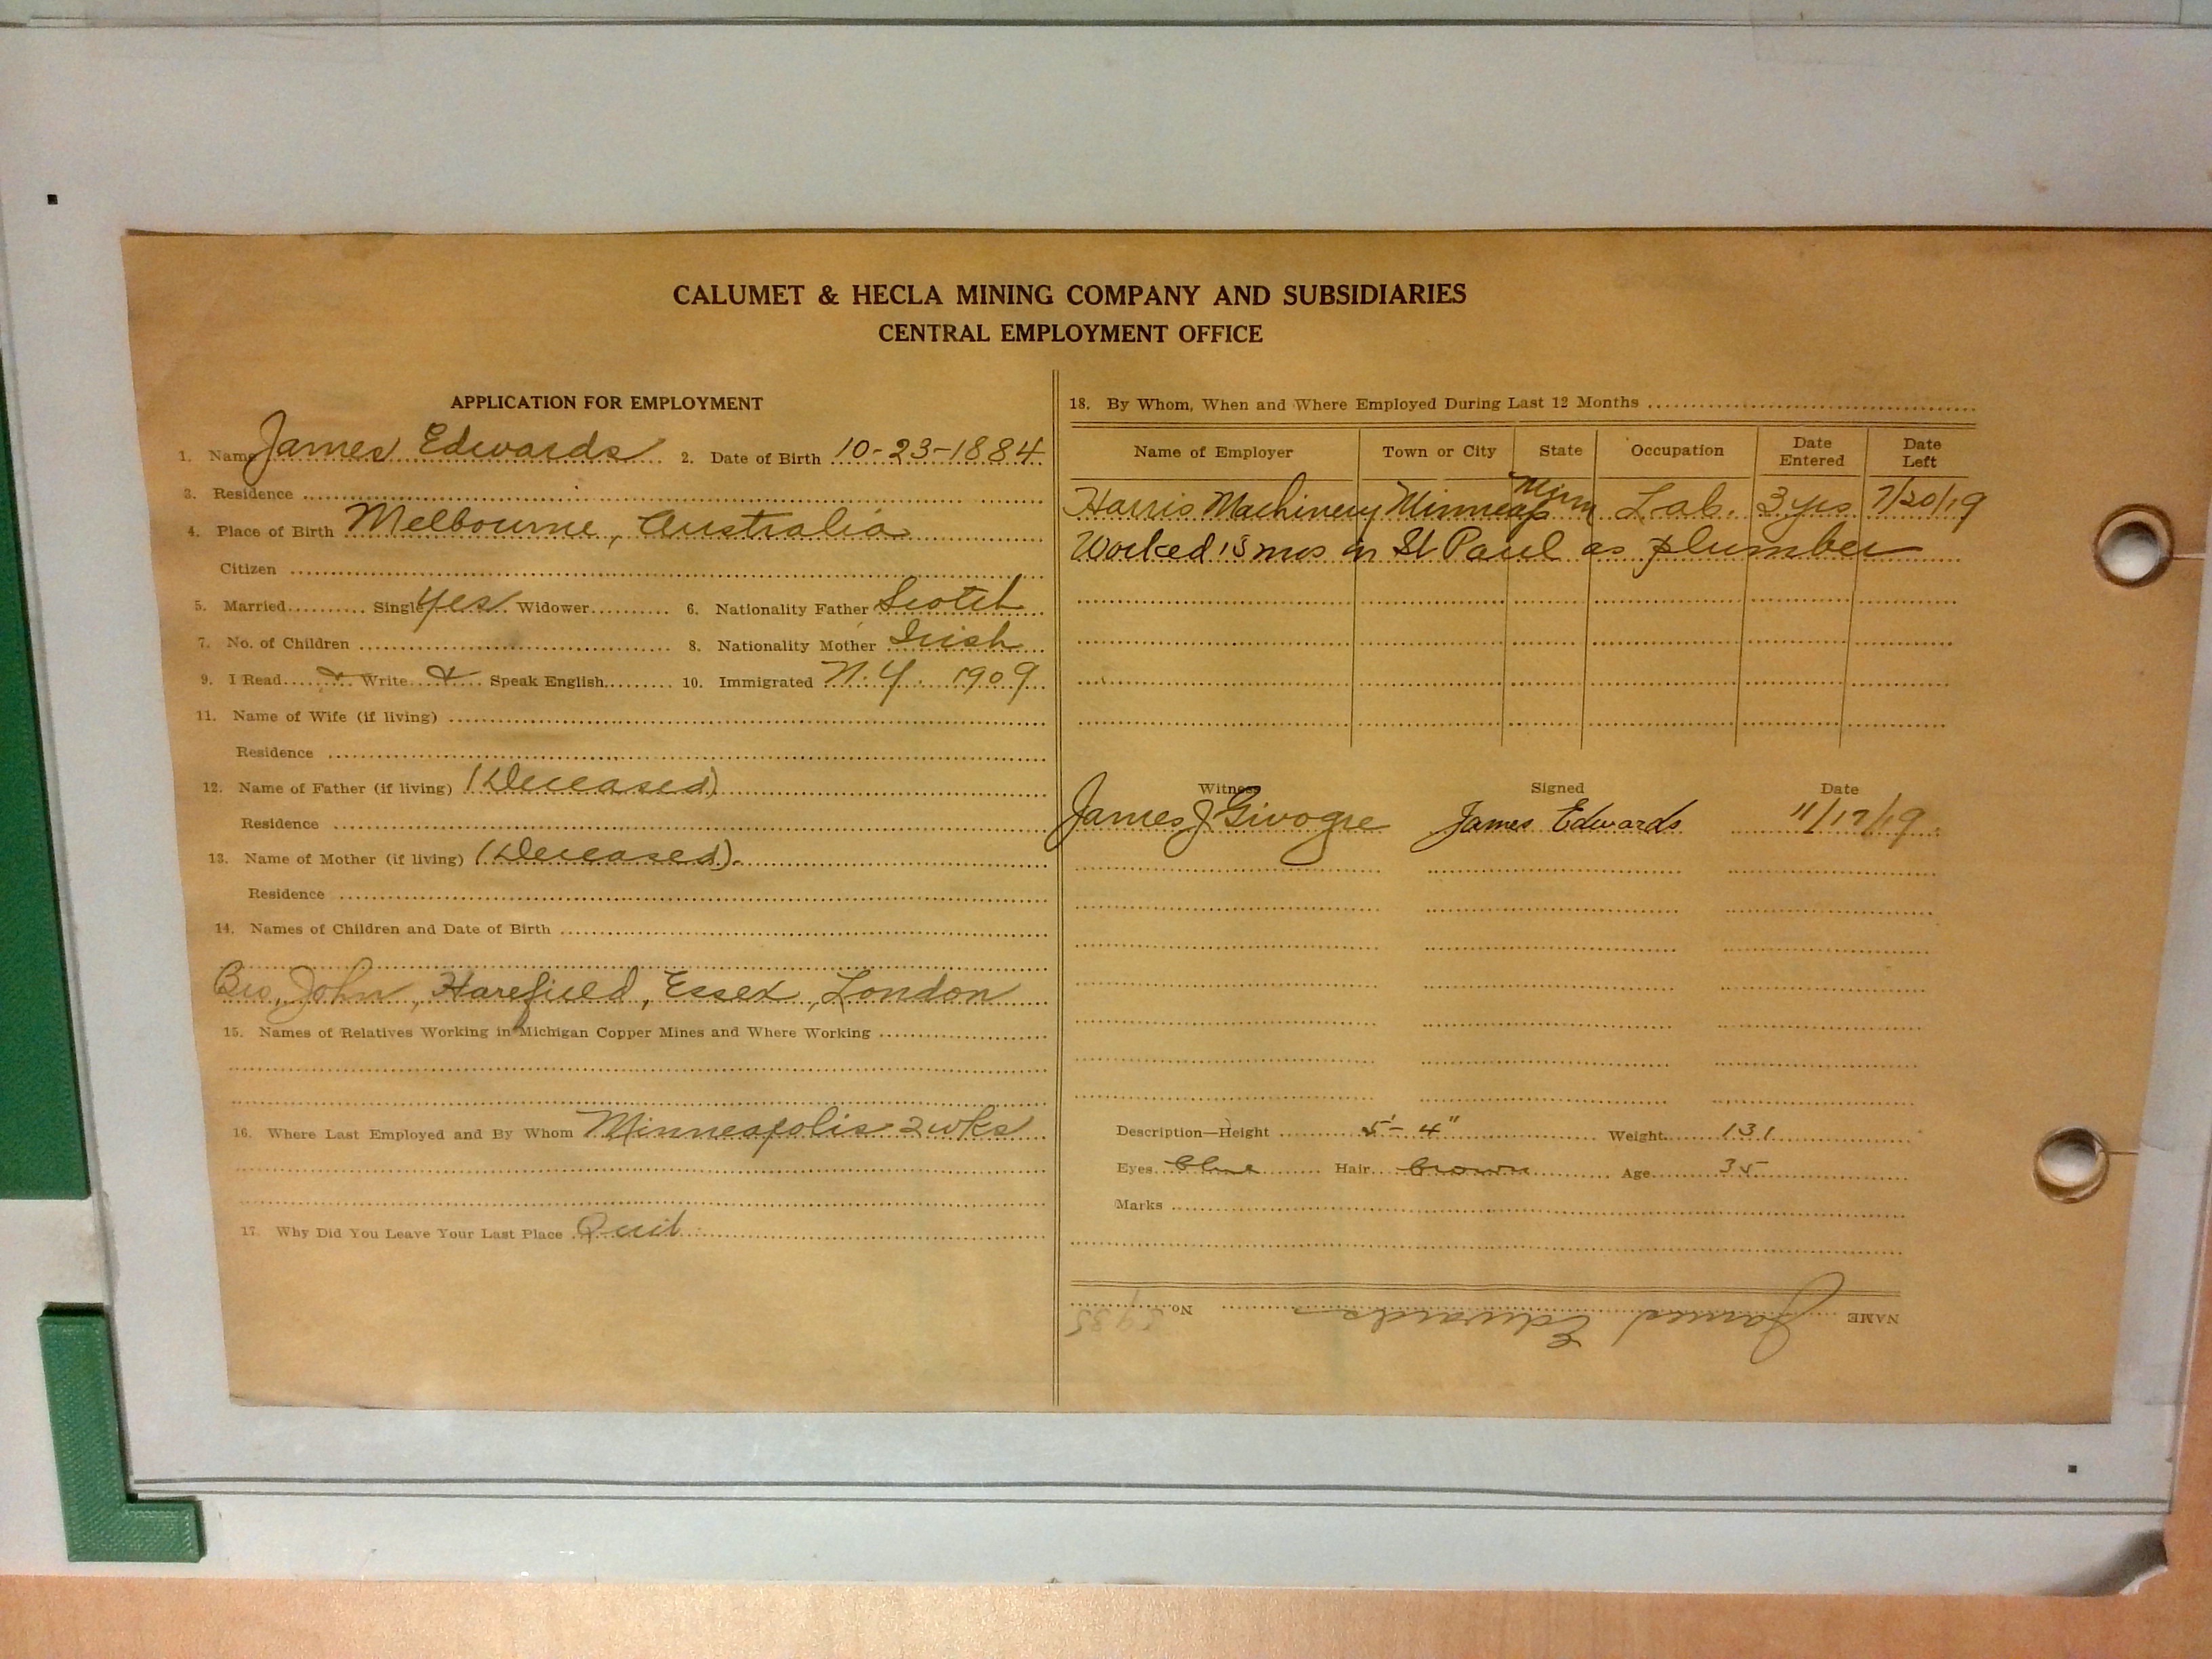 CALUMET & HECLA MINING COMPANY AND SUBSIDIARIES
CENTRAL EMPLOYMENT OFFICE
APPLICATION FOR EMPLOYMENT
1. Name James Edwards 2. Date of Birth 10-23-1884
3. Residence
4. Place of Birth Melbourne, Australia
Citizen
5. Married Single Yes Widower 6. Nationality Father Scotch
7. No. of Children 8. Nationality Mother Irish
9. I Read Write Speak English 10. Immigrated N.Y. 1909
11. Name of Wife (if living)
Residence
12. Name of Father (if living) (Deceased)
Residence
13. Name of Mother (if living) (Deceased).
Residence
14. Names of Children and Date of Birth
Bro, John, Harefield, Essex, London
15. Names of Relatives Working in Michigan Copper Mines and Where Working
16. Where Last Employed and By Whom Minneapolis 2 wks
17. Why Did You Leave Your Last Place Quit
18. By Whom, When and Where Employed During Last 12 Months
Name of Employer Town or City State Occupation Date Entered Date Left
Harris Machinery Minneap Minn Lab. 3 yrs 7/20/19
Worked 18 mos in St Paul as plumber
Witness Signed Date
James J. James Edwards 11/17/19
Description—Height 5'-4" Weight 131
Eyes blue Hair brown Age 35
Marks
NAME James Edwards No. 5935